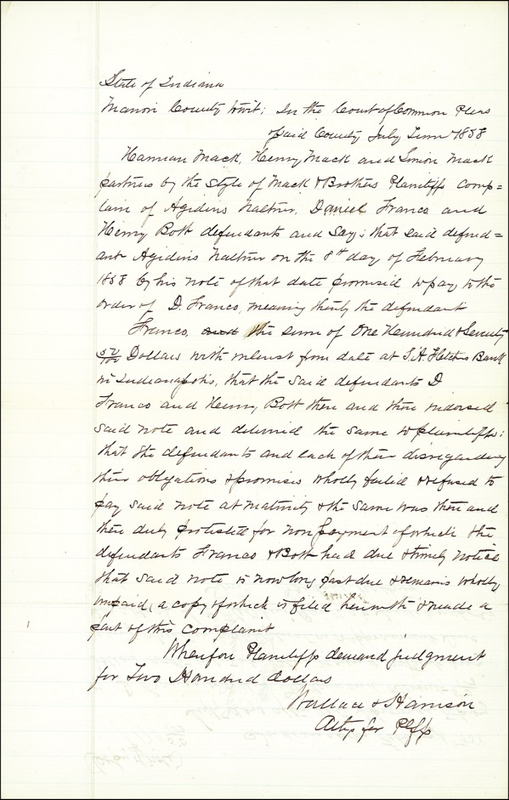 State of Indiana
Marion County to wit: In the Court of Common Pleas
of said County July Term 1858
Herman Mack, Henry Mack and Simon Mack
partners by the style of Mack & Brothers Plaintiffs comp=
lain of Agidius Naltner, Daniel Franco and
Henry Bott defendants and say: that said defend=
ant Agidius Naltner on the 8th day of February
1858 by his note of that date promised to pay to the
order of D. Franco, meaning thereby the defendant
Franco, the sum of One Hundred & Seventy
Dollars with interest from date at S. A. Fletchers Bank
in Indianapolis, that the said defendants D
Franco and Henry Bott then and there indorsed
said note and delivered the same to plaintiffs:
that the defendants and each of them disregarding
their obligations & promises wholly failed & refused to
pay said note at maturity & the same was then and
there duly protested for non payment of which the
defendants Franco & Bott had due & timely notice
that said note is now long past due & remains wholly
unpaid, a copy of which is filed herewith & made a
part of this complaint
Wherefore Plaintiffs demand judgment
for Two Hundred dollars
Wallace & Harrison
Attys for Plffs